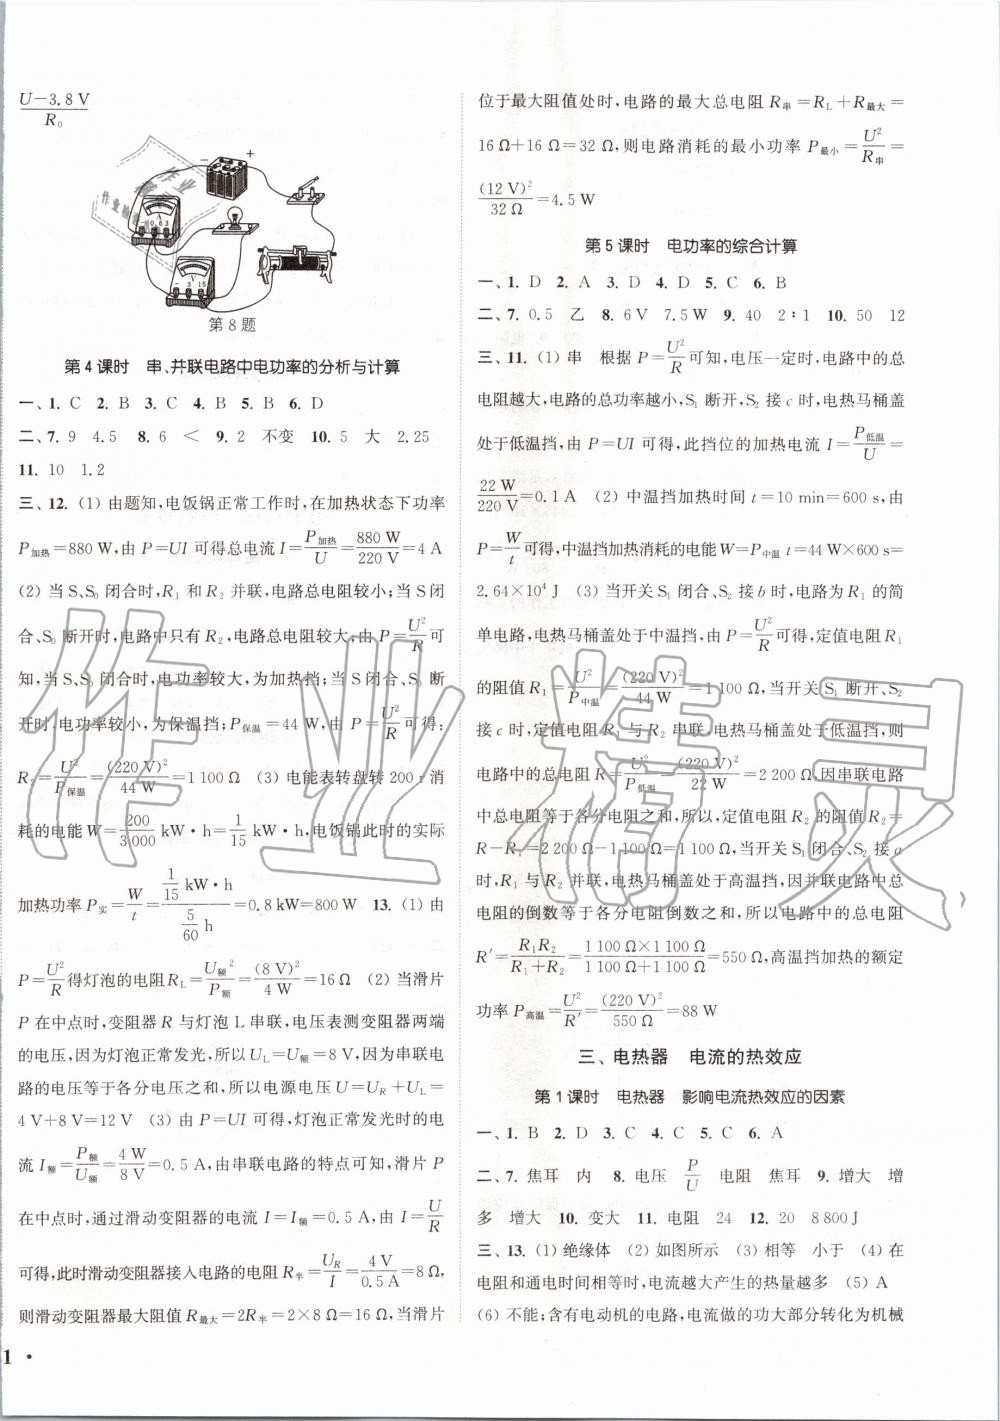 U－3.8 V
R₀
－ ＋
A
－ 0.6 3
V
－ 3 15
第8题
第4课时 串、并联电路中电功率的分析与计算
一、1. C 2. B 3. C 4. B 5. B 6. D
二、7. 9 4.5 8. 6 ＜ 9. 2 不变 10. 5 大 2.25
11. 10 1.2
三、12. (1) 由题知,电饭锅正常工作时,在加热状态下功率
P加热＝880 W,由 P＝UI 可得总电流 I＝P加热/U＝880 W/220 V＝4 A
(2) 当 S、S₀ 闭合时,R₁ 和 R₂ 并联,电路总电阻较小;当 S 闭
合、S₀ 断开时,电路中只有 R₂,电路总电阻较大;由 P＝U²/R 可
知,当 S、S₀ 闭合时,电功率较大,为加热挡;当 S 闭合、S₀ 断
开时,电功率较小,为保温挡;P保温＝44 W,由 P＝U²/R 可得:
R₂＝U²/P保温＝(220 V)²/44 W＝1 100 Ω (3) 电能表转盘转 200 r 消
耗的电能 W＝200/3 000 kW·h＝1/15 kW·h,电饭锅此时的实际
加热功率 P实＝W/t＝(1/15 kW·h)/(5/60 h)＝0.8 kW＝800 W 13. (1) 由
P＝U²/R 得灯泡的电阻 RL＝U额²/P额＝(8 V)²/4 W＝16 Ω (2) 当滑片
P 在中点时,变阻器 R 与灯泡 L 串联,电压表测变阻器两端
的电压,因为灯泡正常发光,所以 UL＝U额＝8 V,因为串联电
路的电压等于各分电压之和,所以电源电压 U＝UR＋UL＝
4 V＋8 V＝12 V (3) 由 P＝UI 可得,灯泡正常发光时的电
流 I额＝P额/U额＝4 W/8 V＝0.5 A,由串联电路的特点可知,滑片 P
在中点时,通过滑动变阻器的电流 I＝I额＝0.5 A,由 I＝U/R
可得,此时滑动变阻器接入电路的电阻 R半＝UR/I＝4 V/0.5 A＝8 Ω,
则滑动变阻器最大阻值 R最大＝2R半＝2×8 Ω＝16 Ω,当滑片
1 ·
位于最大阻值处时,电路的最大总电阻 R串＝RL＋R最大＝
16 Ω＋16 Ω＝32 Ω,则电路消耗的最小功率 P最小＝U²/R串＝
(12 V)²/32 Ω＝4.5 W
第5课时 电功率的综合计算
一、1. D 2. A 3. D 4. D 5. C 6. B
二、7. 0.5 乙 8. 6 V 7.5 W 9. 40 2∶1 10. 50 12
三、11. (1) 串 根据 P＝U²/R 可知,电压一定时,电路中的总
电阻越大,电路的总功率越小,S₁ 断开,S₂ 接 c 时,电热马桶盖
处于低温挡,由 P＝UI 可得,此挡位的加热电流 I＝P低温/U＝
22 W/220 V＝0.1 A (2) 中温挡加热时间 t＝10 min＝600 s,由
P＝W/t 可得,中温挡加热消耗的电能 W＝P中温 t＝44 W×600 s＝
2.64×10⁴ J (3) 当开关 S₁ 闭合、S₂ 接 b 时,电路为 R₁ 的简
单电路,电热马桶盖处于中温挡,由 P＝U²/R 可得,定值电阻 R₁
的阻值 R₁＝U²/P中温＝(220 V)²/44 W＝1 100 Ω,当开关 S₁ 断开、S₂
接 c 时,定值电阻 R₁ 与 R₂ 串联,电热马桶盖处于低温挡,则
电路中的总电阻 R＝U²/P低温＝(220 V)²/22 W＝2 200 Ω,因串联电路
中总电阻等于各分电阻之和,所以,定值电阻 R₂ 的阻值 R₂＝
R－R₁＝2 200 Ω－1 100 Ω＝1 100 Ω,当开关 S₁ 闭合、S₂ 接 a
时,R₁ 与 R₂ 并联,电热马桶盖处于高温挡,因并联电路中总
电阻的倒数等于各分电阻倒数之和,所以电路中的总电阻
R′＝R₁R₂/(R₁＋R₂)＝(1 100 Ω×1 100 Ω)/(1 100 Ω＋1 100 Ω)＝550 Ω,高温挡加热的额定
功率 P高温＝U²/R′＝(220 V)²/550 Ω＝88 W
三、电热器 电流的热效应
第1课时 电热器 影响电流热效应的因素
一、1. B 2. D 3. C 4. C 5. C 6. A
二、7. 焦耳 内 8. 电压 P/U 电阻 焦耳 9. 增大 增
多 增大 10. 变大 11. 电阻 24 12. 20 8 800 J
三、13. (1) 绝缘体 (2) 如图所示 (3) 相等 小于 (4) 在
电阻和通电时间相等时,电流越大产生的热量越多 (5) A
(6) 不能;含有电动机的电路,电流做的功大部分转化为机械
作业精灵